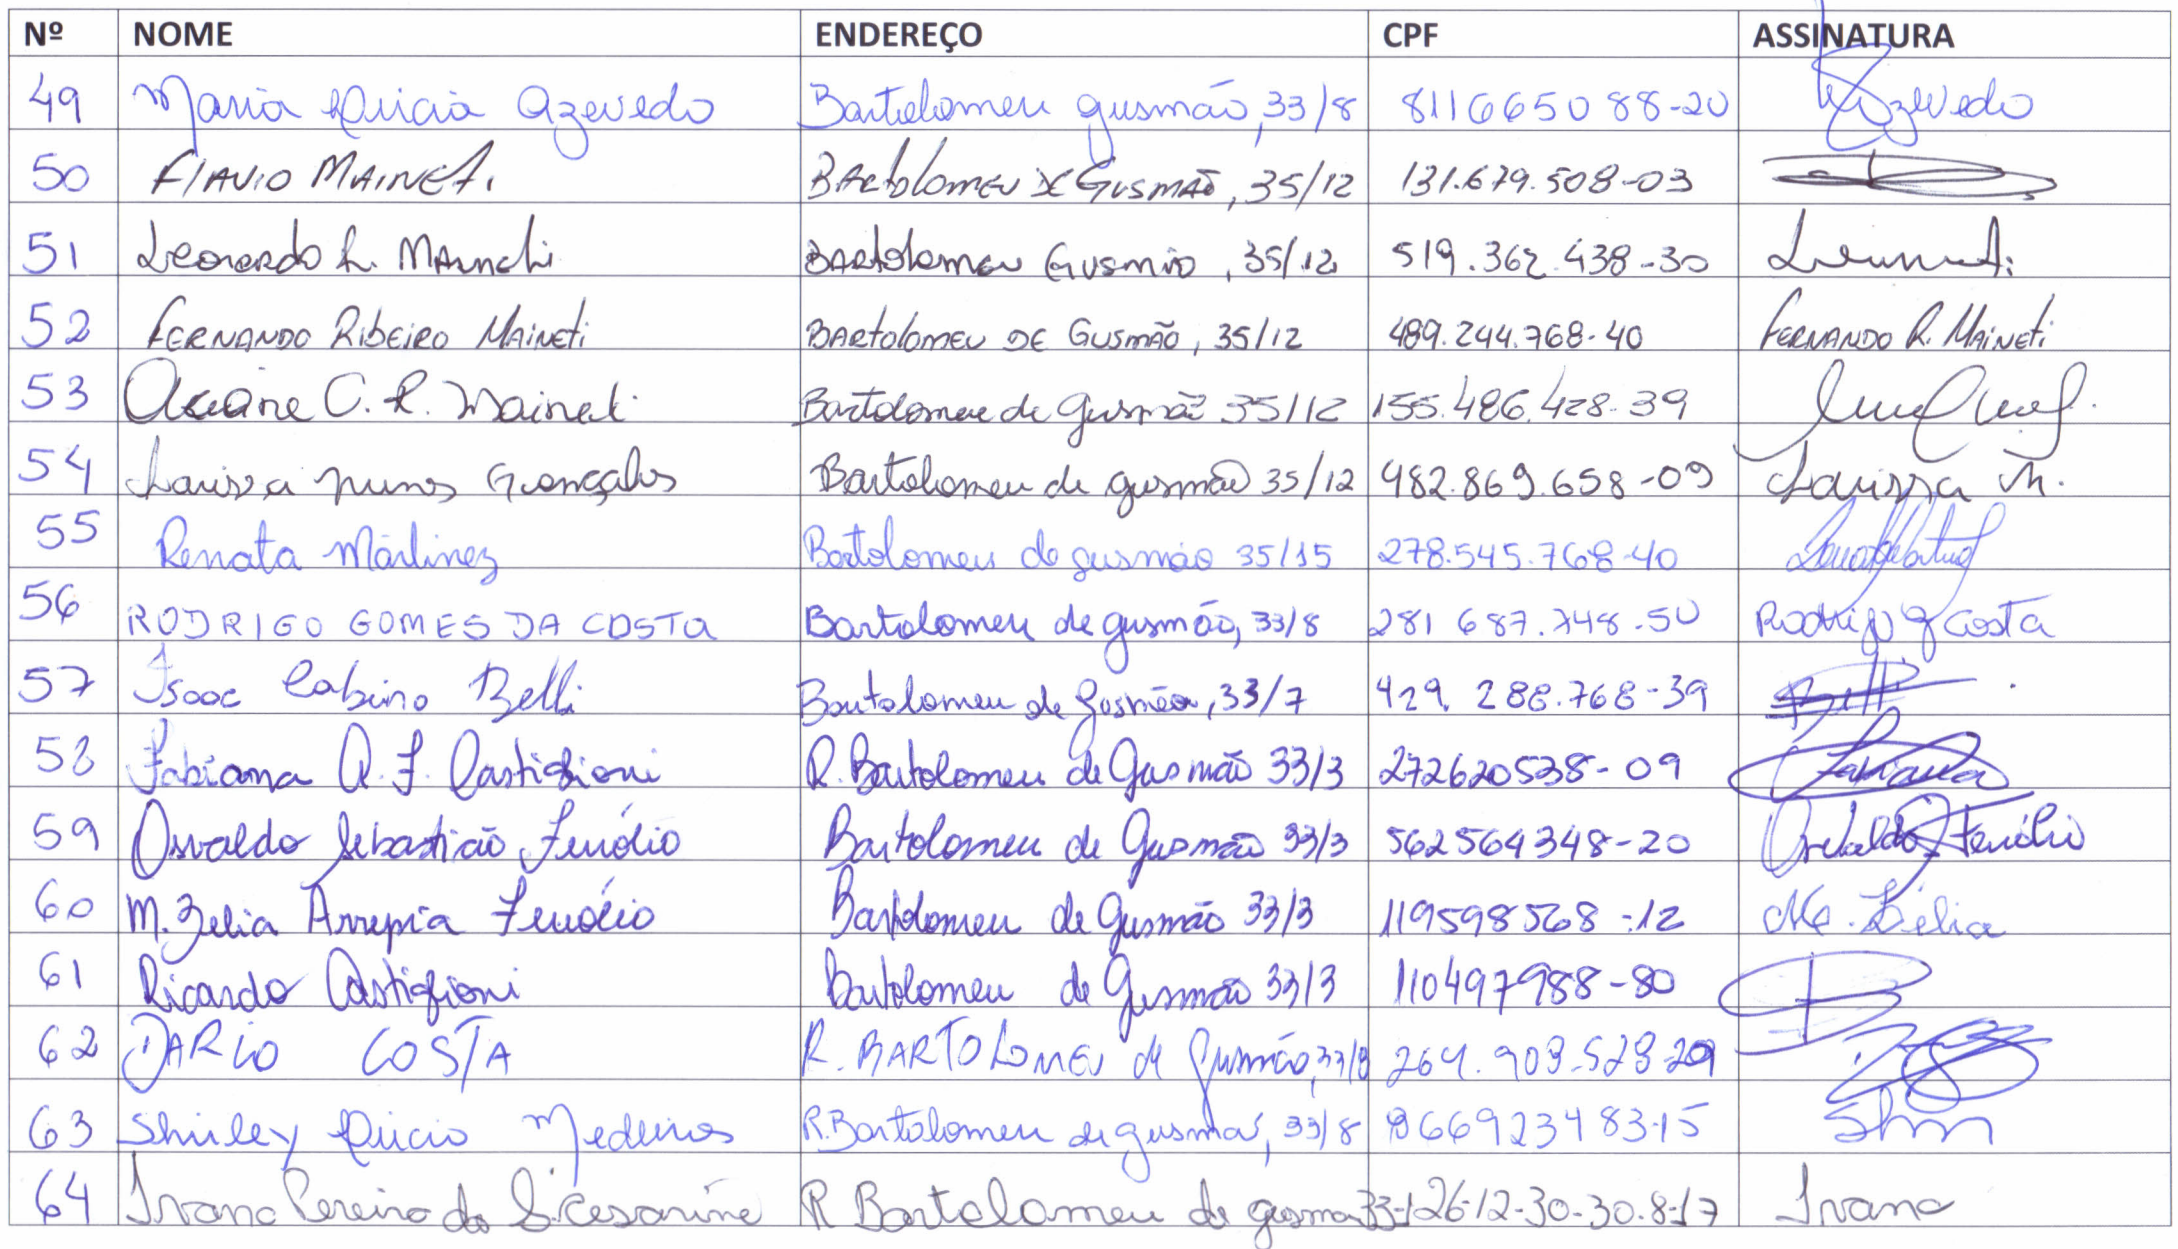 Nº NOME ENDEREÇO CPF ASSINATURA
49 Maria Lúcia Azevedo Bartolomeu gusmão, 33/8 811665088-20 Azevedo
50 FlAVIO MAINETi BARtolomeu de GUSMÃO, 35/12 131.679.508-03
51 Leonardo R. Maineti BARtolomeu Gusmão, 35/12 519.362.438-30
52 FERNANDO RibEiRO MAiNEti BARtolomeu DE GUSMÃO, 35/12 489.244.768-40 FERNANDO R. MAiNEti
53 C. R. Maineti Bartolomeu de Gusmão 35/12 155.486.428-39
54 Larissa nunes Gonçalves Bartolomeu de gusmão 35/12 482.869.658-09 Larissa N.
55 Renata Martinez Bartolomeu de gusmão 35/15 278.545.768-40
56 RODRIGO GOMES DA COSTA Bartolomeu de gusmão, 33/8 281 687.748-50 Rodrigo G Costa
57 Isaac Cabino Belli Bartolomeu de Gusmão, 33/7 429. 288.768-39 Belli
58 Fabiana A. F. Castiglioni R. Bartolomeu de Gusmão 33/3 272620538-09 Fabiana
59 Osvaldo Sebastião Fenólio Bartolomeu de Gusmão 33/3 562564348-20 Osvaldo Fenólio
60 M. Zelia Arrepia Fenólio Bartolomeu de Gusmão 33/3 119598568-12 Ma. Zélia
61 Ricardo Castiglioni Bartolomeu de Gusmão 33/3 110497988-80
62 DARIO COSTA R. BARTOLOMEU de Gusmão, 33/8 264.903.528-29
63 Shirley Lúcio Medeiros R. Bartolomeu de gusmão, 33/8 866923483-15 Shir
64 Ivana Pereira da S. Cesarine R Bartolomeu de gusmao 33-126-12-30-30.8-17 Ivana